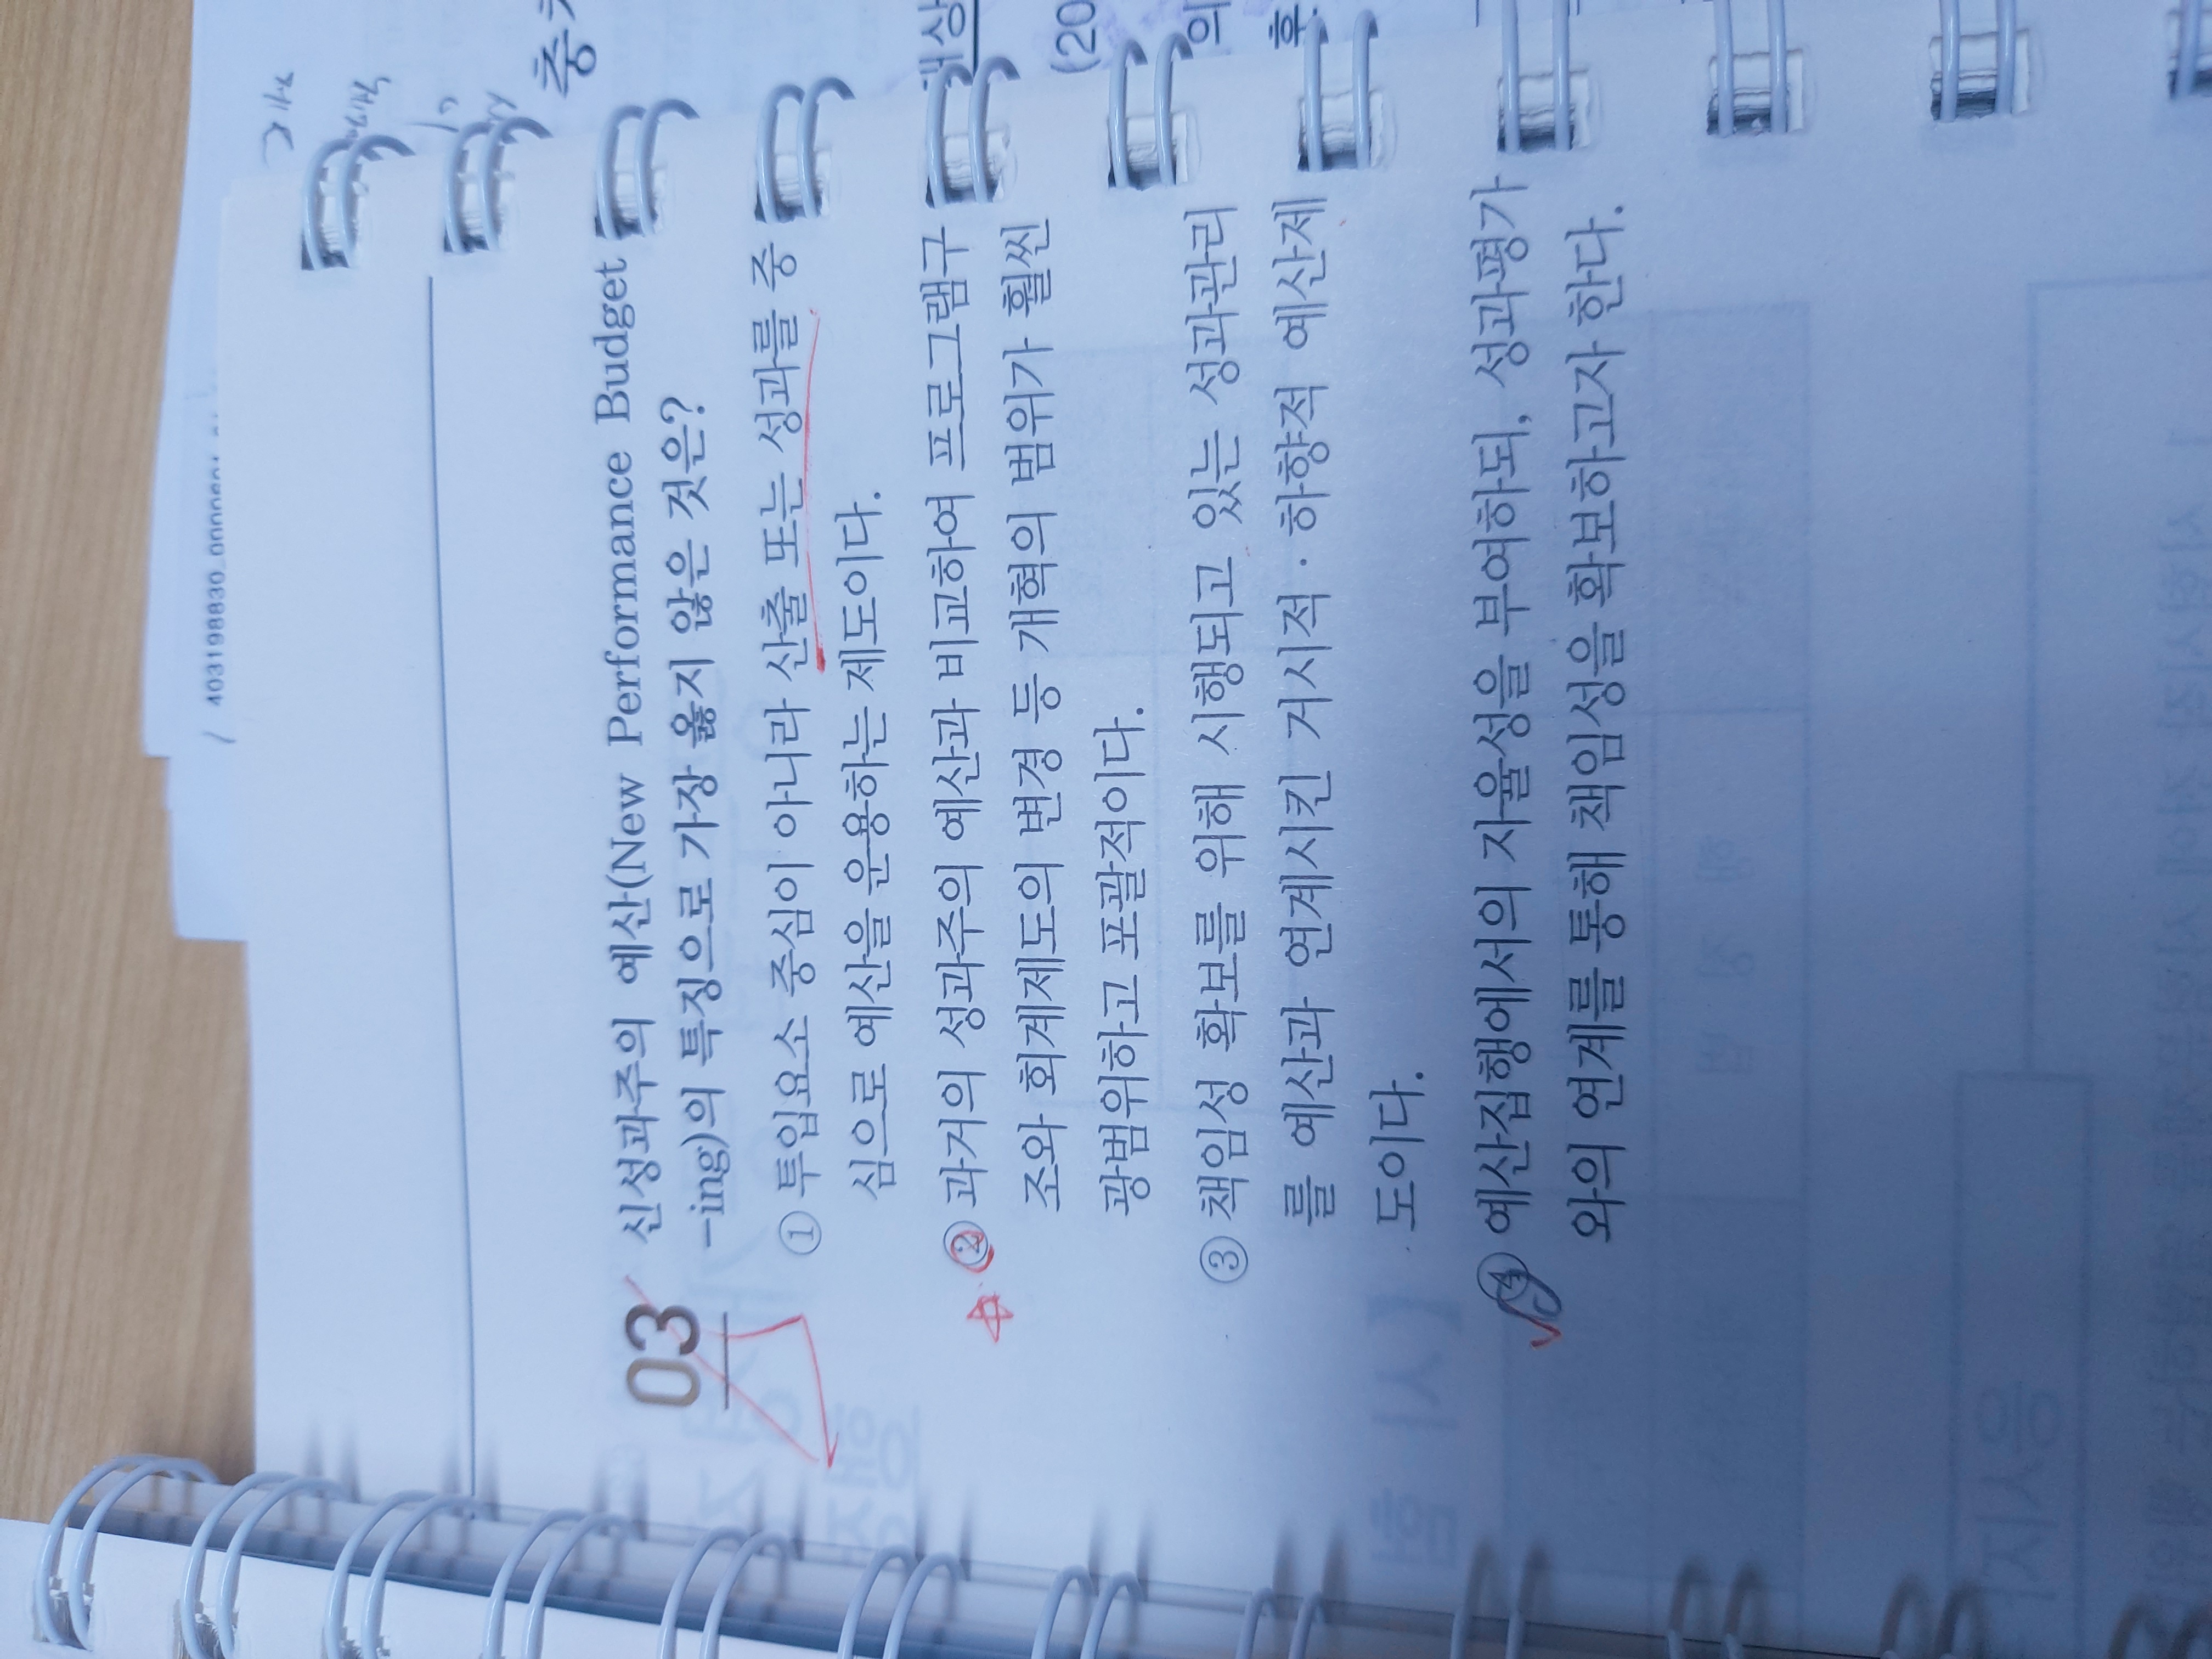 403198830
충
03 신성과주의 예산(New Performance Budget
-ing)의 특징으로 가장 옳지 않은 것은?
① 투입요소 중심이 아니라 산출 또는 성과를 중
심으로 예산을 운용하는 제도이다.
② 과거의 성과주의 예산과 비교하여 프로그램구
조와 회계제도의 변경 등 개혁의 범위가 훨씬
광범위하고 포괄적이다.
③ 책임성 확보를 위해 시행되고 있는 성과관리
를 예산과 연계시킨 거시적·하향적 예산제
도이다.
④ 예산집행에서의 자율성을 부여하되, 성과평가
와의 연계를 통해 책임성을 확보하고자 한다.
(20
의